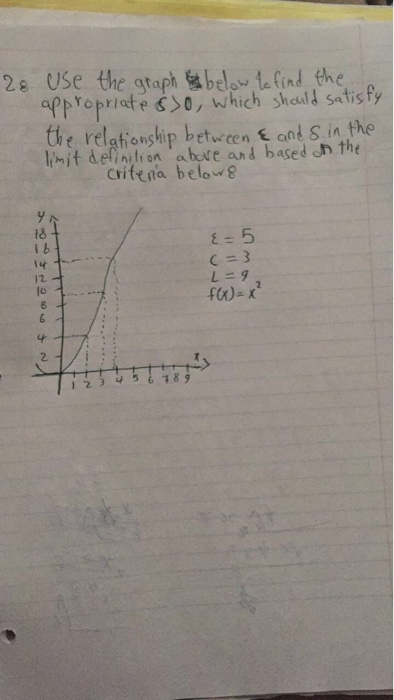 28 Use the graph below to find the
appropriate δ>0, which should satisfy
the relationship between ε and δ in the
limit definition above and based on the
criteria below:
y
18
16
14
12
10
8
6
4
2
ε = 5
c = 3
L = 9
f(x) = x²
x
1 2 3 4 5 6 7 8 9